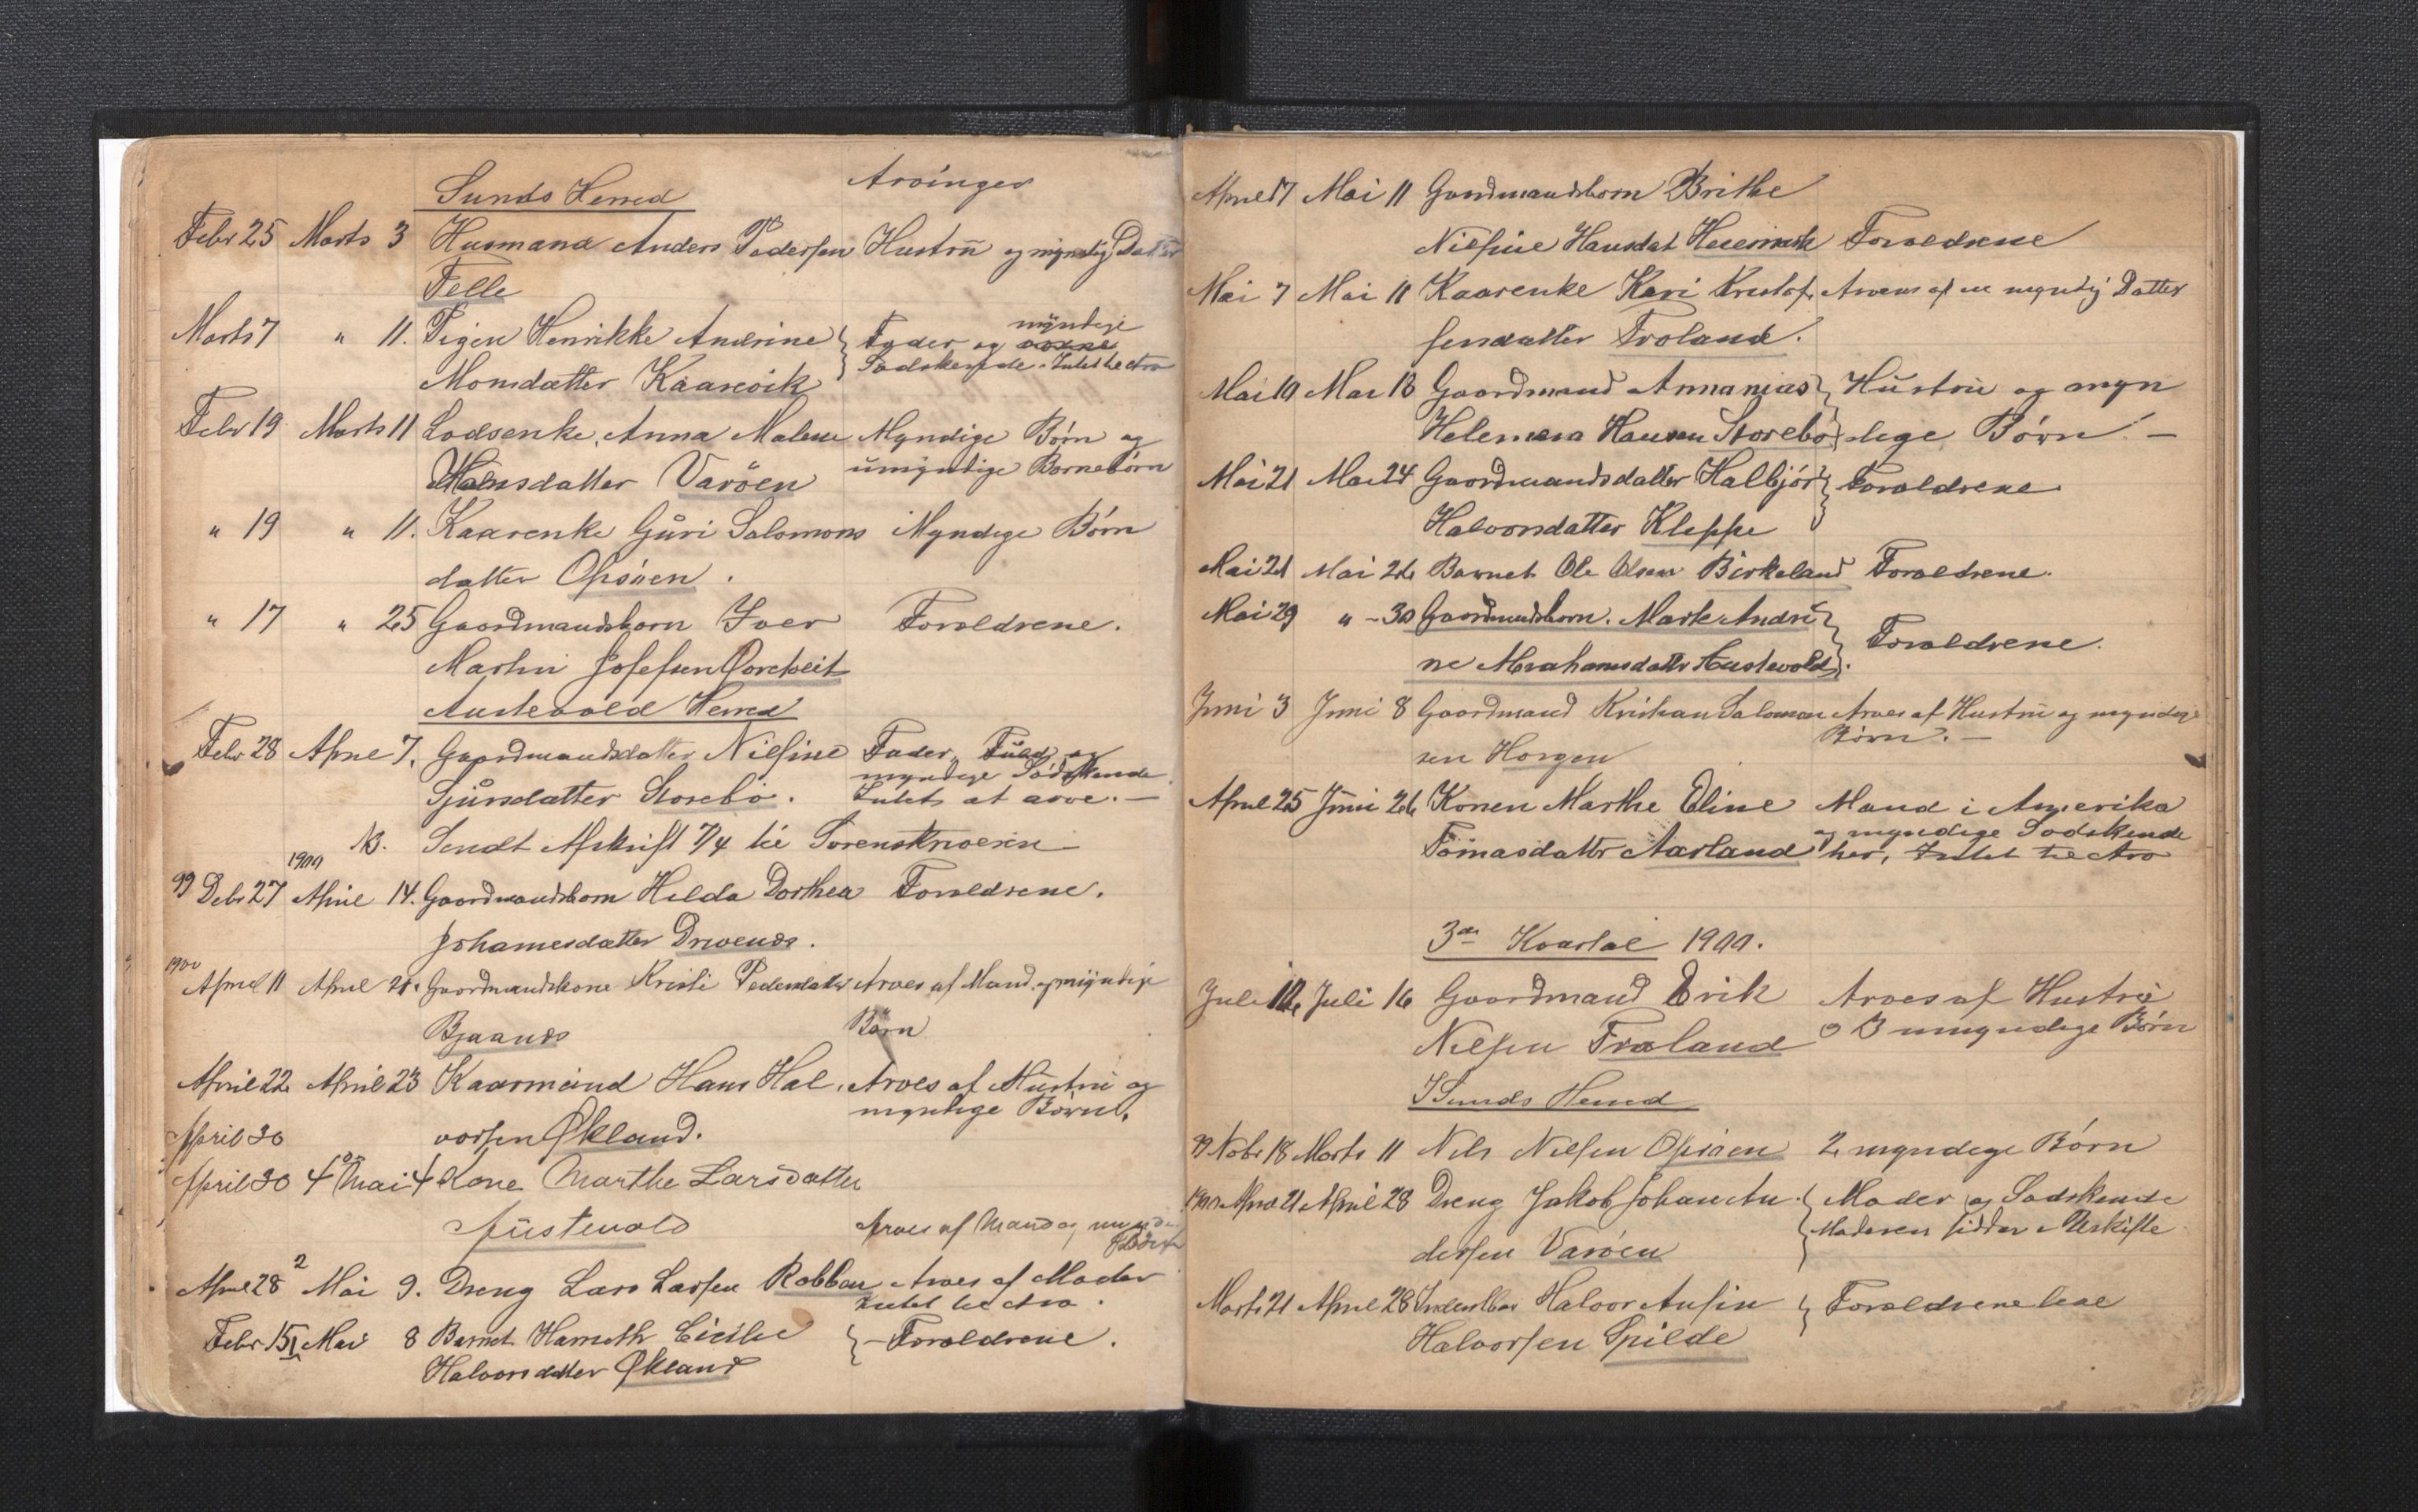 Sunds Herred Arvinger
Febr 25 Marts 3 Husmand Anders Pedersen Hustru og myndig Datter
Telle
Marts 7 " 11. Pigen Henrikke Andrine } Fader og myndige
Monsdatter Kaarevik Sødskende. Intet at arve
Febr 19 Marts 11 Lodsenke Anna Malene Myndige Børn og
Hansdatter Varöen umyndige Børnebørn
" 19 " 11. Kaarenke Guri Salomons Myndige Børn
datter Opsöen.
" 17 " 25 Gaardmandsbarn Iver Foræld­rene.
Martin Josefsen
Austevold Herred
Febr 28 April 7. Gaardmandsdatter Nilsine Fader, Fuld og
Sjursdatter Storebö. myndige Sødskende
Intet at arve. —
NB. Sendt Afskrift 7/4 til Sorenskriveren
1900
99 Debr 27 April 14. Gaardmandsbarn Hilda Dorthea Forældrene.
Johannesdatter Drivenes.
1900 April 11 April 21. Gaardmandskone Kristi Pedersdatter Arves af Mand og myndige
Bjaanes Børn
April 22 April 23 Kaarmand Hans Hal Arves af Hustru og
myndige Børn.
April 30 vorsen Økland.
April 30 4 Mai 4 Kone Marthe Larsdatter
Austevold Arves af Mand og
April 28 2 Mai 9. Dreng Lars Larsen Rabben Arves af Moder
Intet til Arv.
Febr 15 Mai 8 Barnet Cicilie } - Forældrene.
Halvorsdatter Økland
April 17 Mai 11 Gaardmandsbarn Brithe
Nilsine Hansdat Forældrene
Mai 7 Mai 11 Kaarenke Kari Kristof Arves af en myndig Datter
fersdatter Froland.
Mai 10 Mai 13 Gaardmand Annanias } Hustru og myn
Hansen Storebö } dige Børn. —
Mai 21 Mai 24 Gaardmandsdatter Halbjör } Forældrene
Halvorsdatter Kleppe
Mai 21 Mai 26 Barnet Ole Olsen Birkeland Forældrene.
Mai 29 " - 30 Gaardmandsbarn. Marte Andri }
ne Abrahamsdatter Austevold } Forældrene.
Juni 3 Juni 8 Gaardmand Kristian Salomon Arves af Hustru og myndige
Børn. —
sen Horgen
April 25 Juni 26 Konen Marthe Eline Mand i Amerika
og myndige Sødskende
Tomasdatter Aarland her, Intet til Arv
3die Kvartal 1900.
Juli 12 Juli 16 Gaardmand Erik Arves af Hustru
Nilsen Froland o 3 umyndige Børn
I Sunds Herred
99 Nobr 18 Marts 11 Nils Nilsen Opsöen 2 myndige Børn
1900 April 21 April 28 Dreng Jakob Johan An { Moder og Sødskende
dersen Varöen Moderen sidder i Uskifte
Marts 21 April 28 Halvor Ansin } Forældrene
Halvorsen Spilde